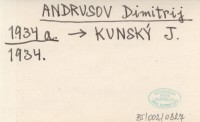 ANDRUSOV Dimitrij
1934 a. → KUNSKÝ J.
1934.
35/002/0327